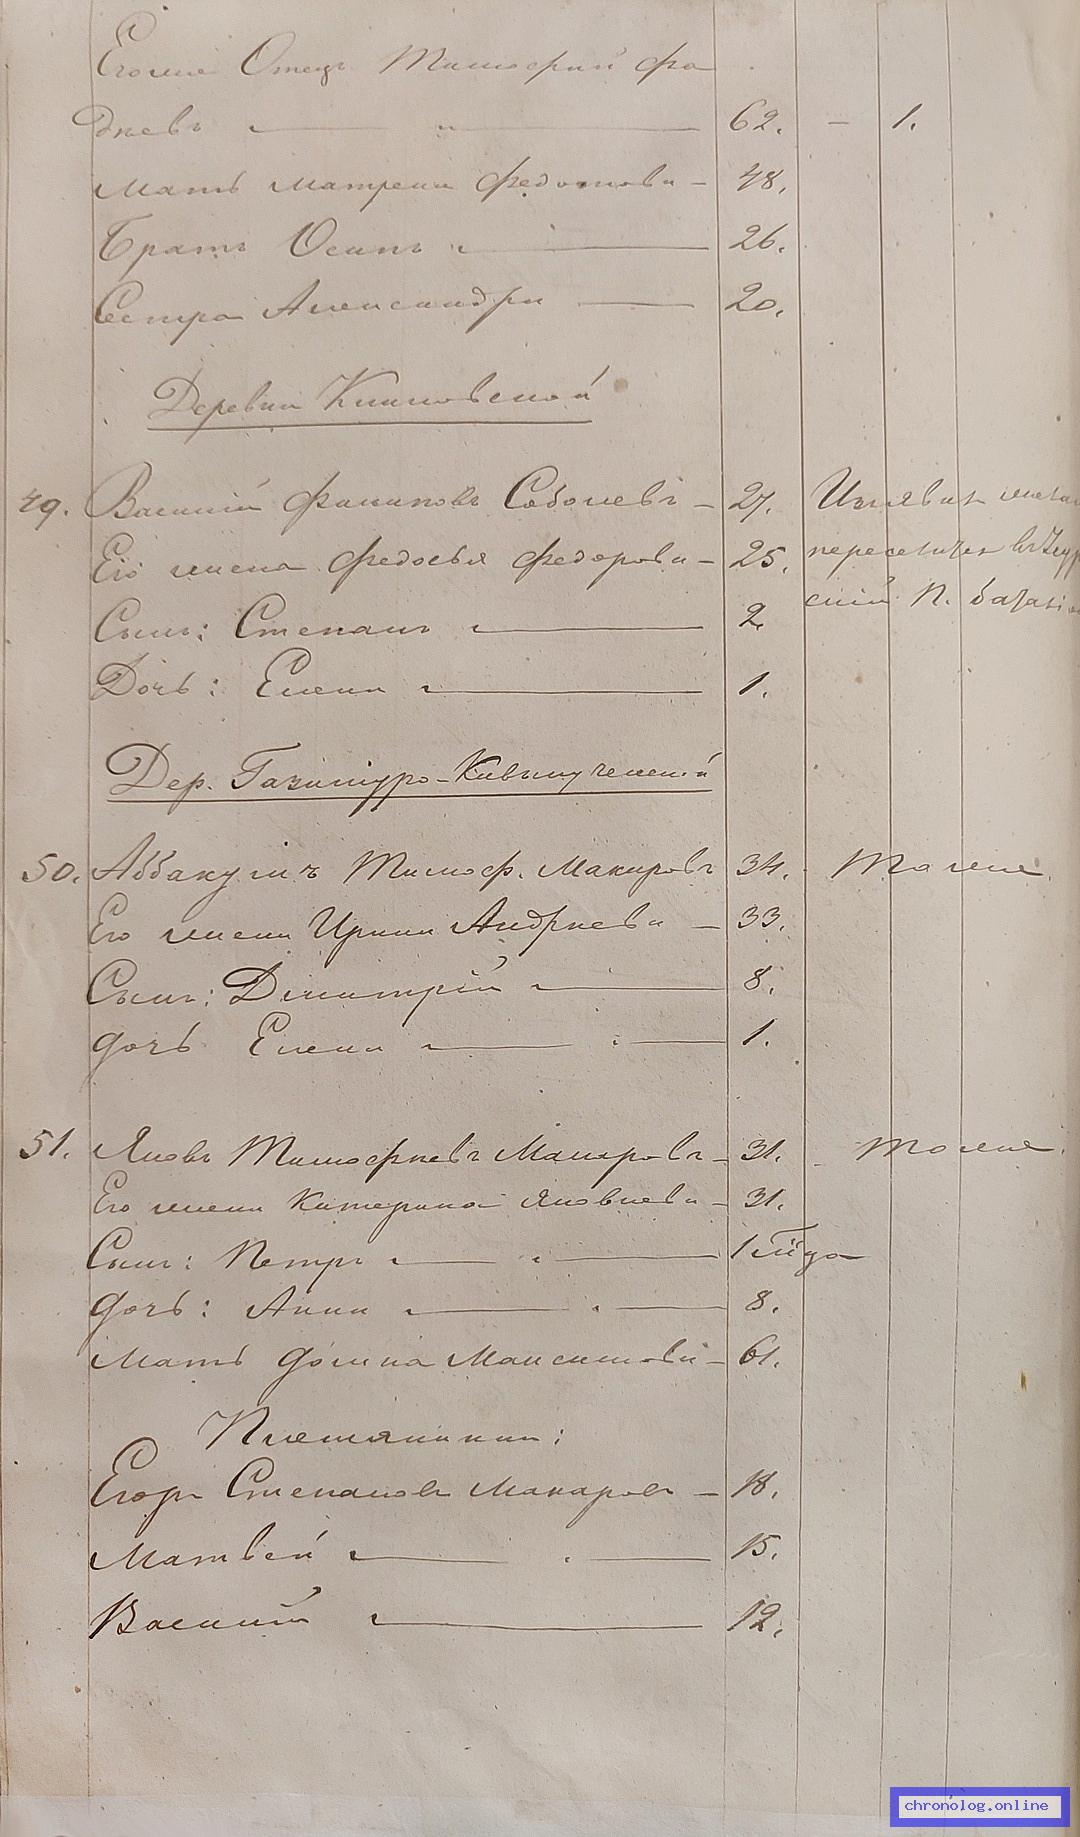 Его же Отец Тимофий Фа
дневъ 62. — 1.
Мать Матрена Федотова — 48.
Братъ Осипъ 26.
Сестра Александра — 20.
Деревни
49. Василій Соболевъ — 27. Изъявил желан
Его жена Федосья Федорова — 25. переселится
Сынъ: Степанъ 2.
Дочь: Елена 1.
Дер. Газимуро-Кивылученской
50. Аввакумъ Тимоф. Макаровъ 34. Тоже.
Его жена Ирина Андреева — 33.
Сынъ: Дмитрій 8.
дочь Елена 1.
51. Яковъ Тимофеевъ Макаровъ — 31. — тоже.
Его жена Катерина Яковлева — 31.
Сынъ: Петръ
дочь: Анна 8.
Мать Домна Максимова — 61.
Племянники:
Егоръ Степановъ Макаровъ — 18.
Матвей 15.
Василій 12.
chronolog.online